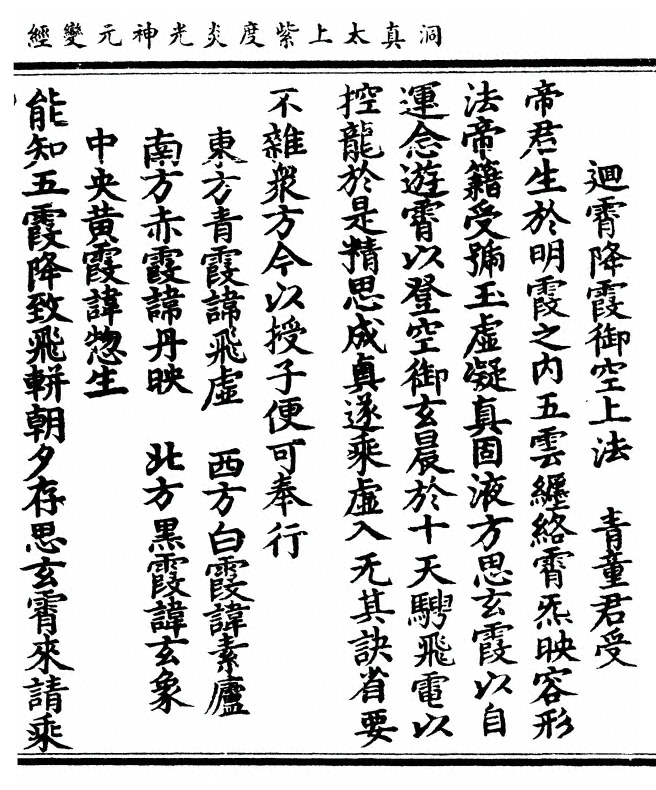 洞真太上紫度炎光神元變經
迴霄降霞御空上法　青童君受
帝君生於明霞之内五雲纏絡霄炁映容形
法帝籍受號玉虛凝真固液方思玄霞以自
運念遊霄以登空御玄晨於十天騁飛電以
控龍於是精思成真遂乘虛入无其訣省要
不雜衆方今以授子便可奉行
東方青霞諱飛虛　西方白霞諱素廬
南方赤霞諱丹映　北方黑霞諱玄象
中央黄霞諱惚生
能知五霞降致飛軿朝夕存思玄霄來請乘